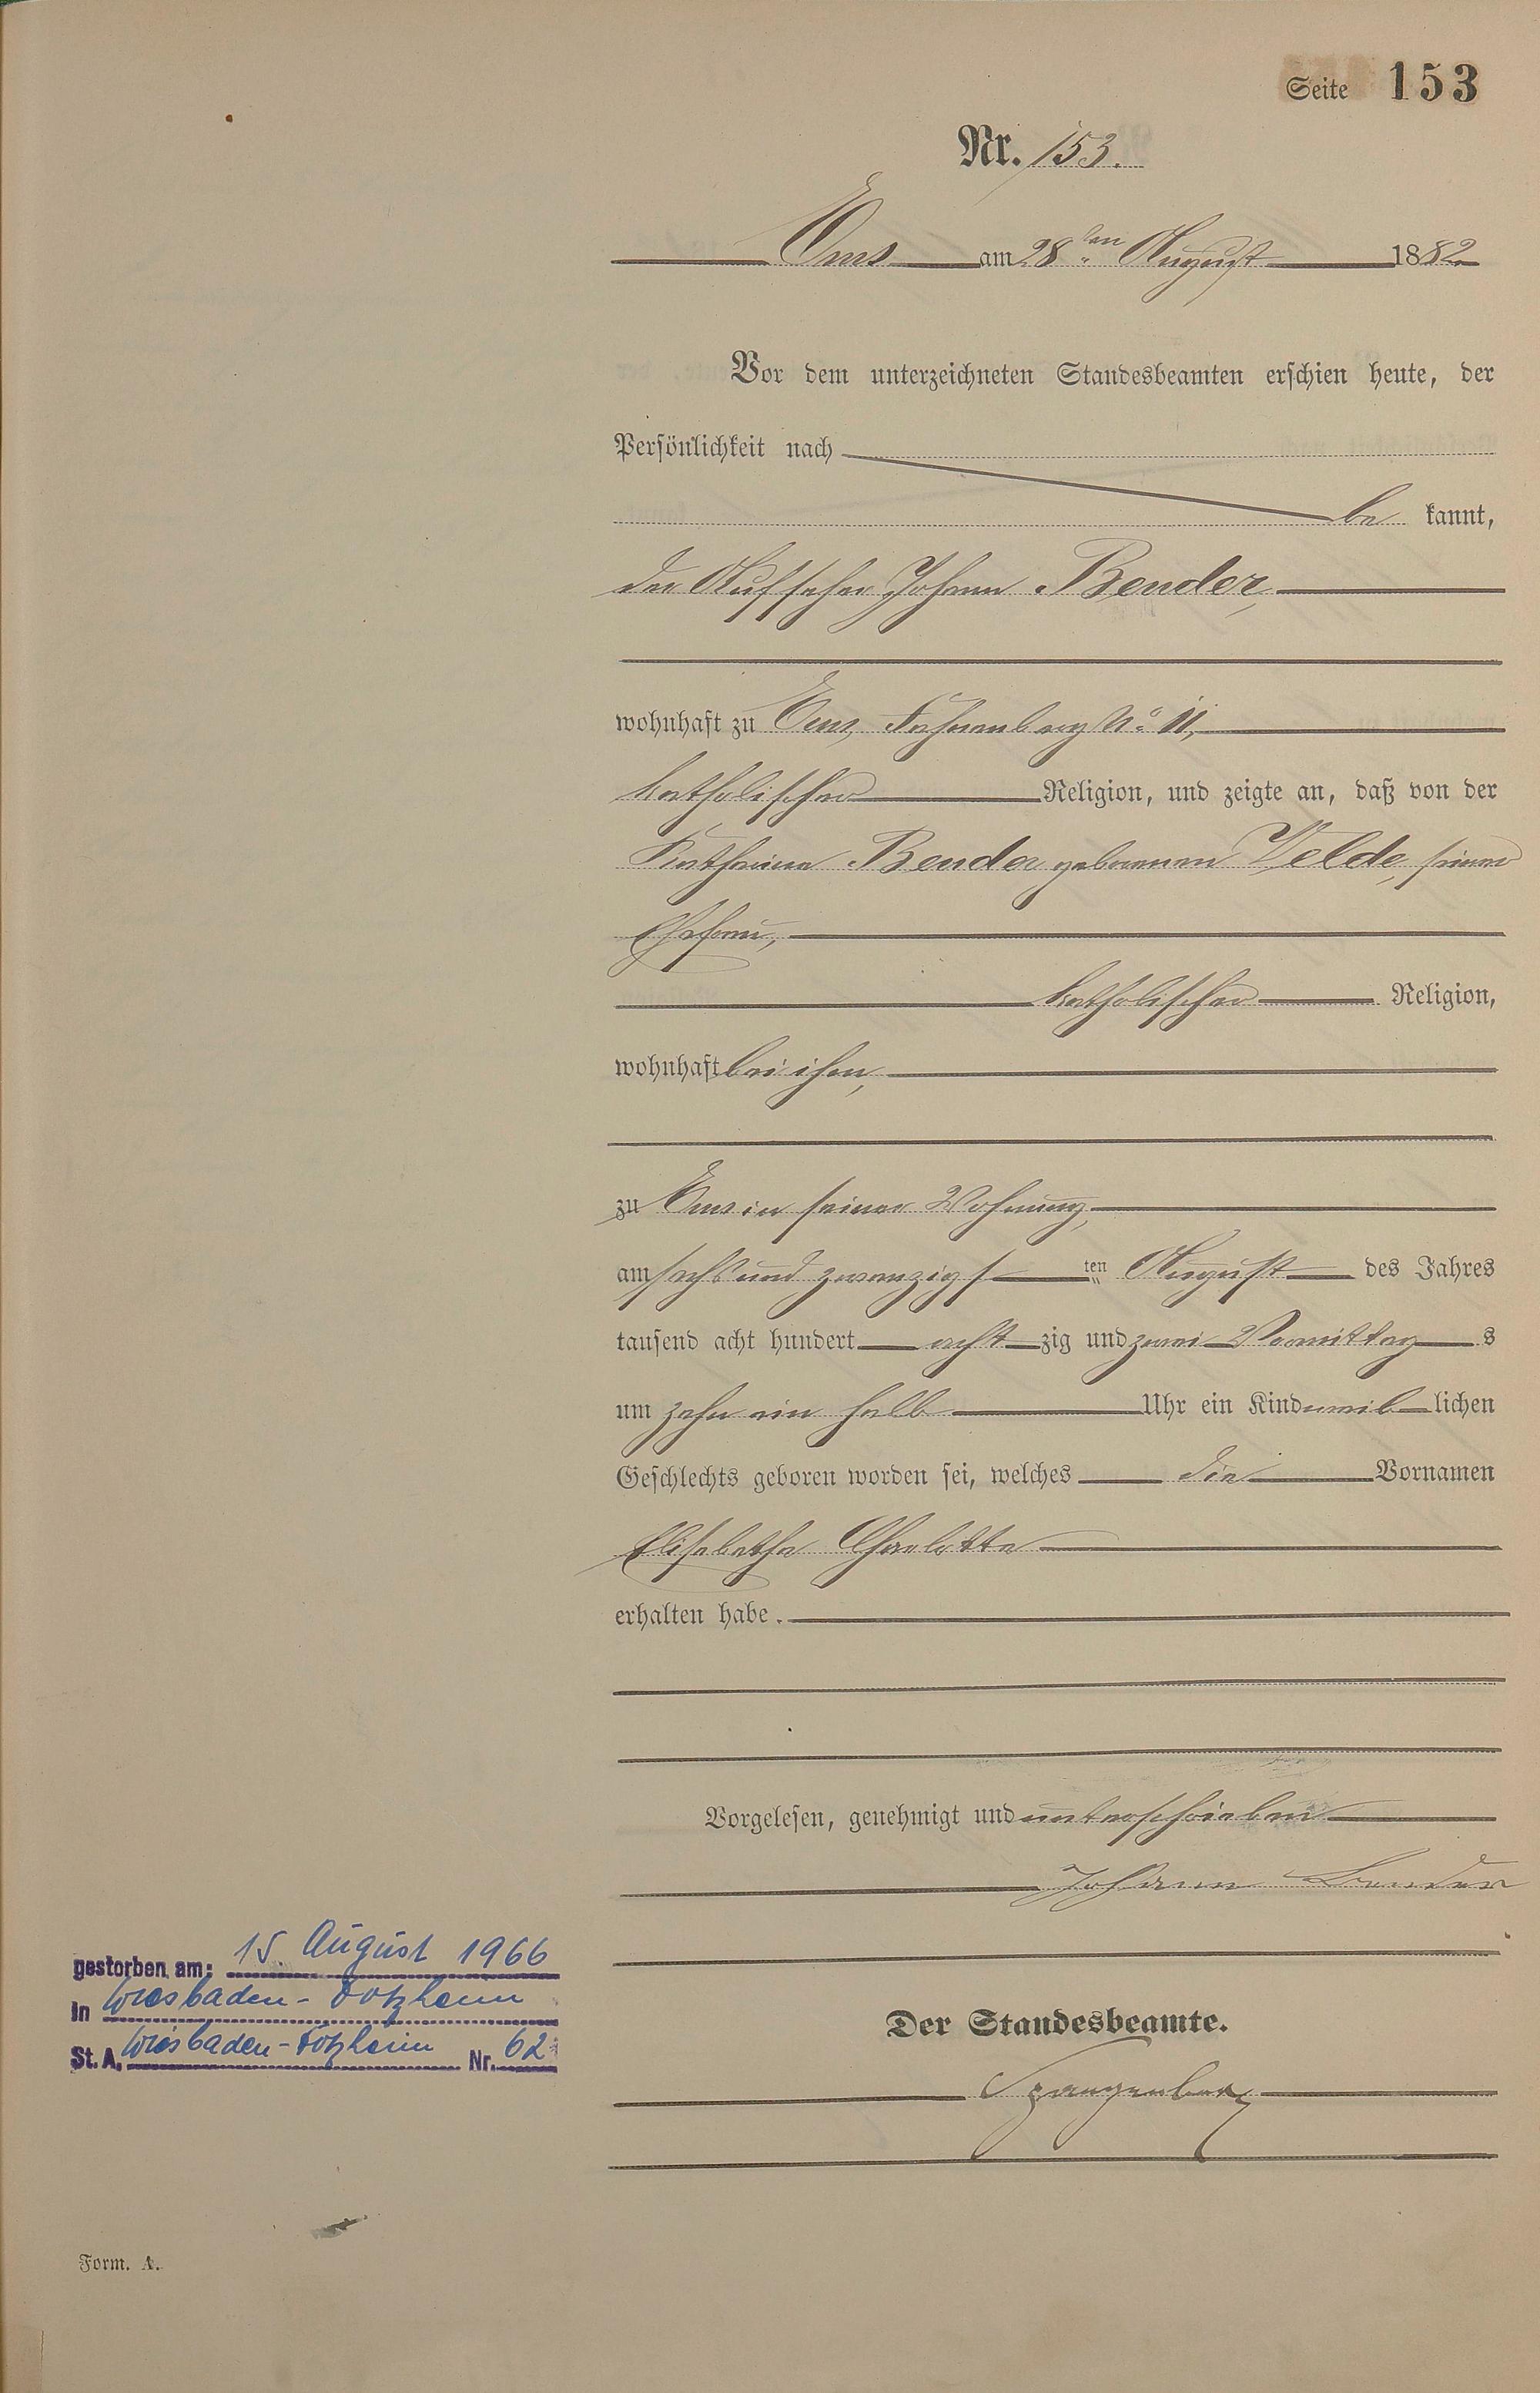 Seite 153
Nr. 153.
Ems am 28ten August 1882
Vor dem unterzeichneten Standesbeamten erschien heute, der
Persönlichkeit nach
be kannt,
der Aufseher Johann Bender,
wohnhaft zu Ems, No 11,
katholischer Religion, und zeigte an, daß von der
Katharina Bender geborenen Velde, seiner
Ehefrau,
katholischer Religion,
wohnhaft bei ihm,
zu Ems in seiner Wohnung,
am sechs und zwanzigsten August des Jahres
tausend acht hundert acht zig und zwei Vormittag s
um zehn ein halb Uhr ein Kind weib lichen
Geschlechts geboren worden sei, welches die Vornamen
Elisabetha Charlotte
erhalten habe.
Vorgelesen, genehmigt und unterschrieben
Johann Bender
gestorben am: 15. August 1966
in Wiesbaden-Dotzheim
St. A. Wiesbaden-Dotzheim Nr. 62
Der Standesbeamte.
Spangenberg
Form. A.